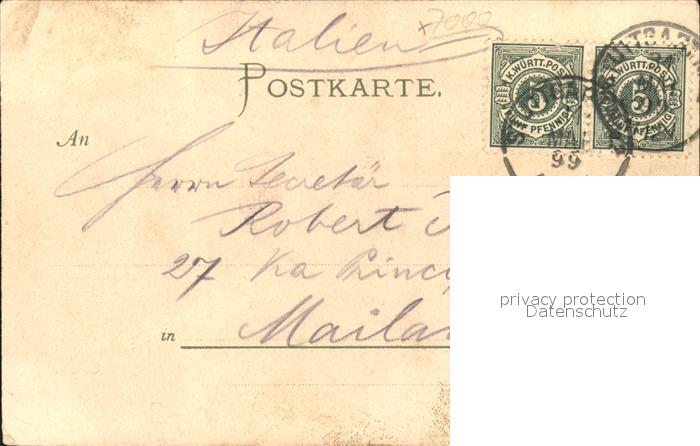 Italien
x7000
POSTKARTE.
K. WÜRTT. POST
5
FÜNF PFENNIG
K. WÜRTT. POST
5
FÜNF PFENNIG
STUTGA
MAI
99
An
Herrn Secretär
Robert
27 Via Princi
in Maila
privacy protection
Datenschutz